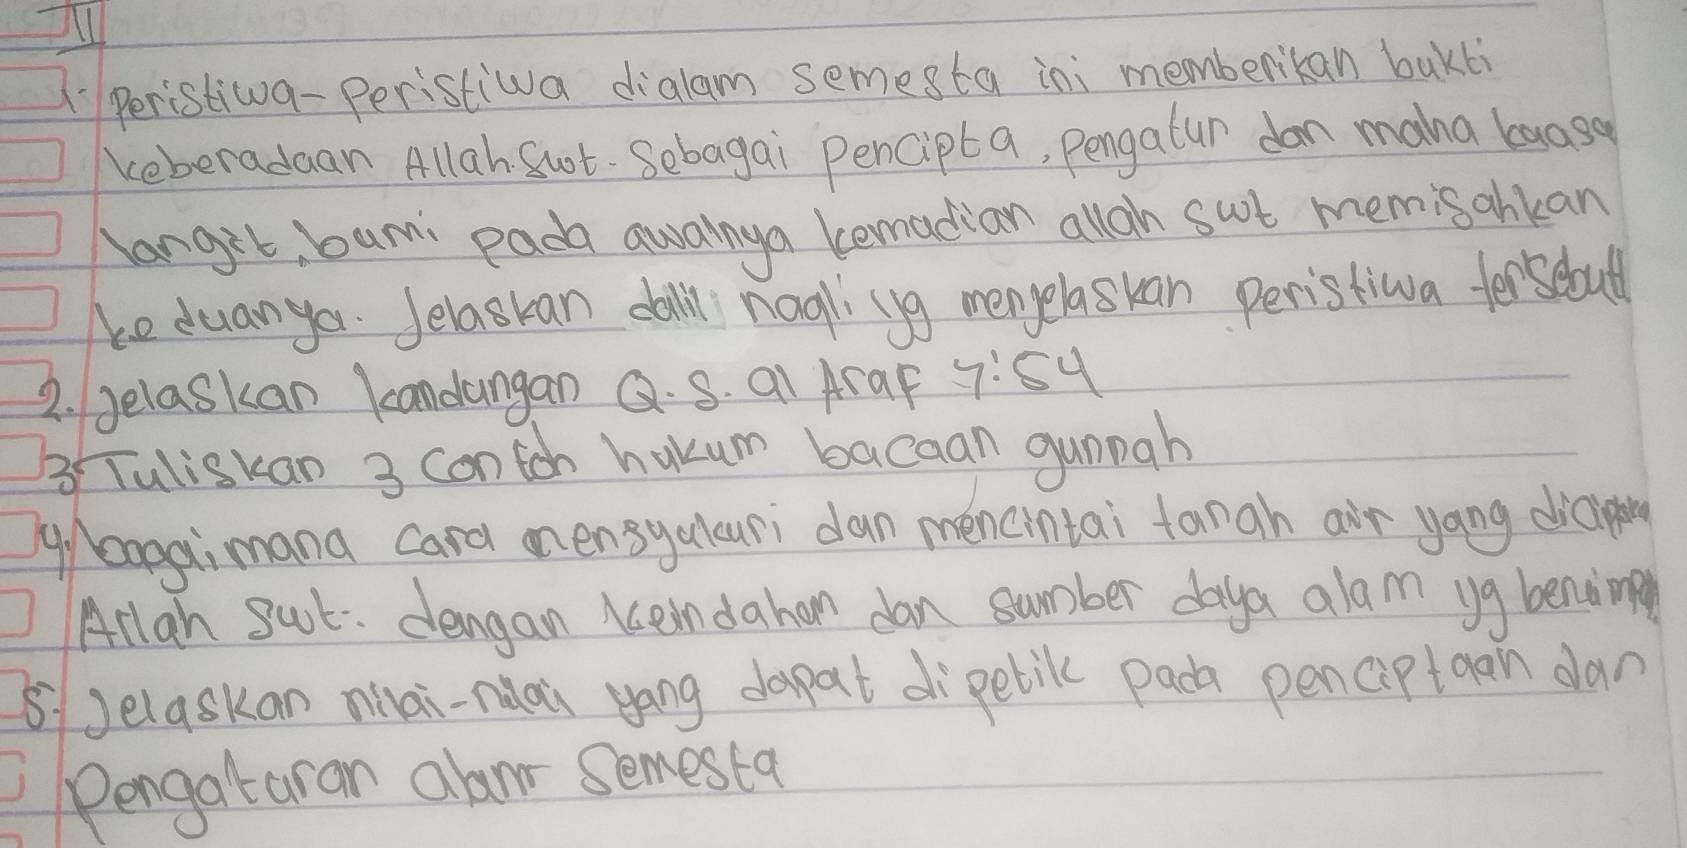 II
1. Peristiwa-Peristiwa dialam semesta ini memberikan bukti
keberadaan Allah.Swt. Sebagai Pencipta, Pengatur dan maha kuasa
langit, bumi pada awalnya kemadian allah swt memisahkan
ke duanya. Jelaskan dalil naqli yg menjelaskan peristiwa tersebutt
2. Jelaskan kandungan Q.S. al Araf 7:54
3 Tuliskan 3 contoh hukum bacaan gunnah
4. bagaimana cara mensyukuri dan mencintai tanah air yang
Allah Swt. dengan keindahan dan sumber daya alam yg
5. Jelaskan nilai-nilai yang dapat dipetik pada penciptaan dan
Pengaturan alam Semesta